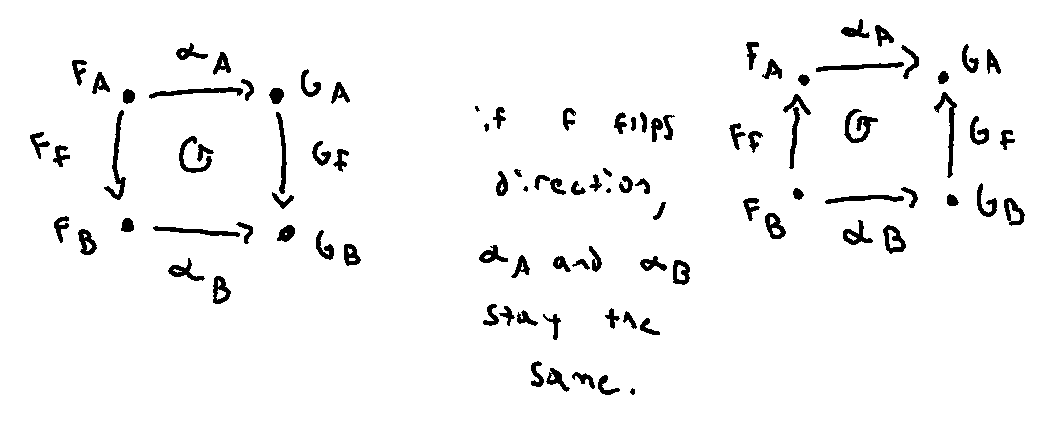 F_A α_A G_A
F_f G_f
F_B α_B G_B
if f flips
direction,
α_A and α_B
stay the
same.
F_A α_A G_A
F_f G_f
F_B α_B G_B